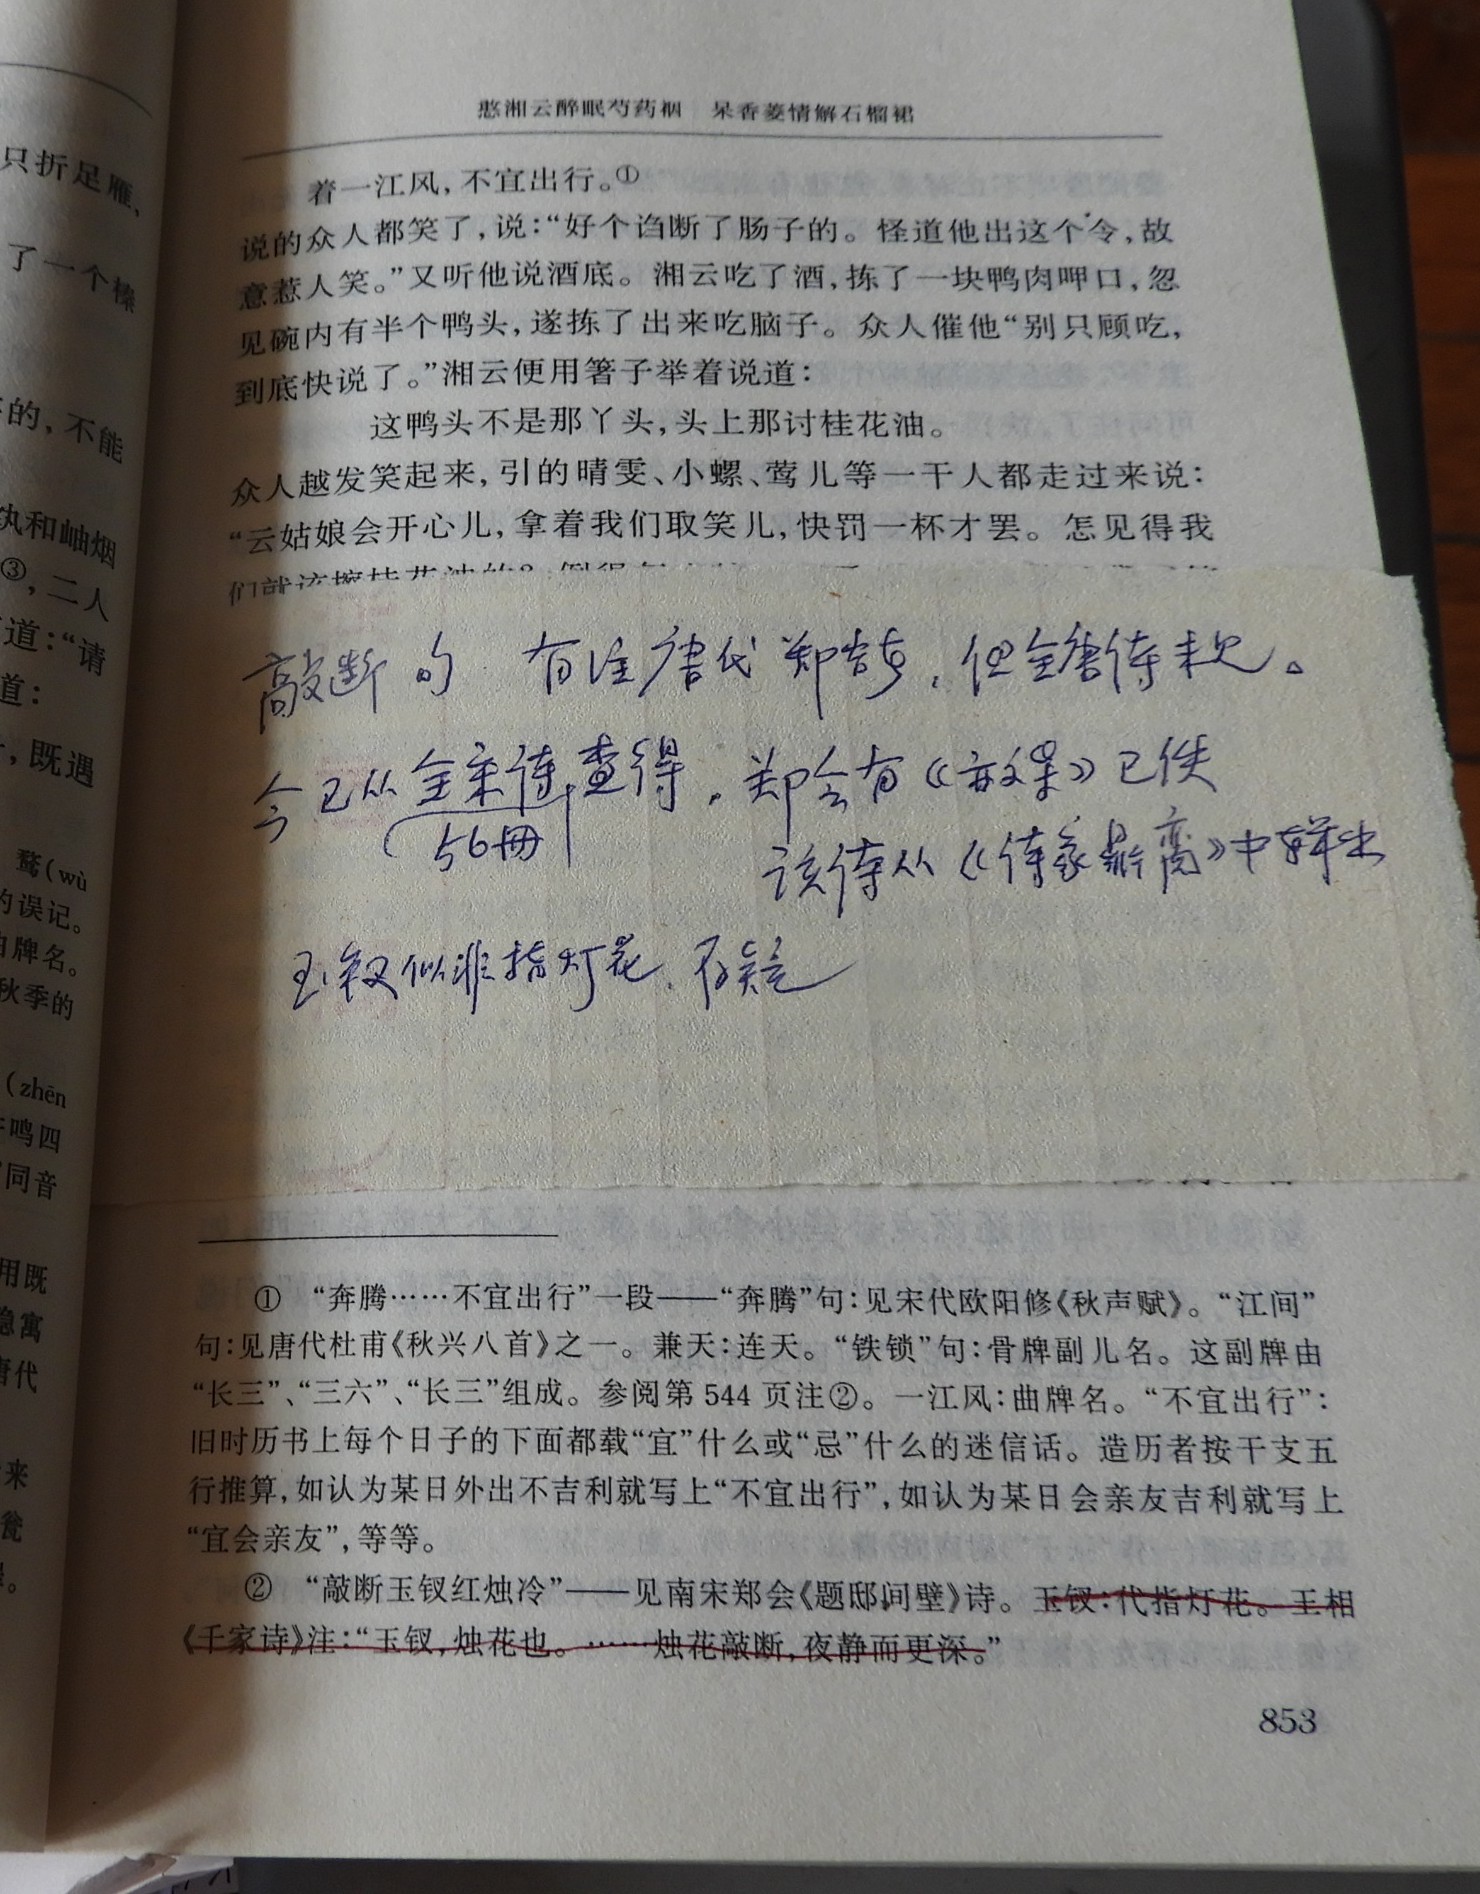 只折足雁、
了一个榛
的，不能
纨和岫烟
③，二人
道：“请
道：
，既遇
鹜(wù
的误记。
曲牌名。
秋季的
(zhēn
鸣四
同音
用既
隐寓
唐代
来
瓮
。
憨湘云醉眠芍药裀　呆香菱情解石榴裙
着一江风，不宜出行。①
说的众人都笑了，说：“好个诌断了肠子的。怪道他出这个令，故
意惹人笑。”又听他说酒底。湘云吃了酒，拣了一块鸭肉呷口，忽
见碗内有半个鸭头，遂拣了出来吃脑子。众人催他“别只顾吃，
到底快说了。”湘云便用箸子举着说道：
这鸭头不是那丫头，头上那讨桂花油。
众人越发笑起来，引的晴雯、小螺、莺儿等一干人都走过来说：
“云姑娘会开心儿，拿着我们取笑儿，快罚一杯才罢。怎见得我
们就该擦桂花油的？倒得每
敲断 句 有注唐代 郑 ，但全唐诗未见。
今已从全宋诗查得，郑会有《亦山集》已佚
56册
该诗从《诗家鼎脔》中辑出
玉钗似非指灯花，存疑
①　“奔腾……不宜出行”一段——“奔腾”句：见宋代欧阳修《秋声赋》。“江间”
句：见唐代杜甫《秋兴八首》之一。兼天：连天。“铁锁”句：骨牌副儿名。这副牌由
“长三”、“三六”、“长三”组成。参阅第 544 页注②。一江风：曲牌名。“不宜出行”：
旧时历书上每个日子的下面都载“宜”什么或“忌”什么的迷信话。造历者按干支五
行推算，如认为某日外出不吉利就写上“不宜出行”，如认为某日会亲友吉利就写上
“宜会亲友”，等等。
②　“敲断玉钗红烛冷”——见南宋郑会《题邸间壁》诗。玉钗：代指灯花。王相
《千家诗》注：“玉钗，烛花也。……烛花敲断，夜静而更深。”
853